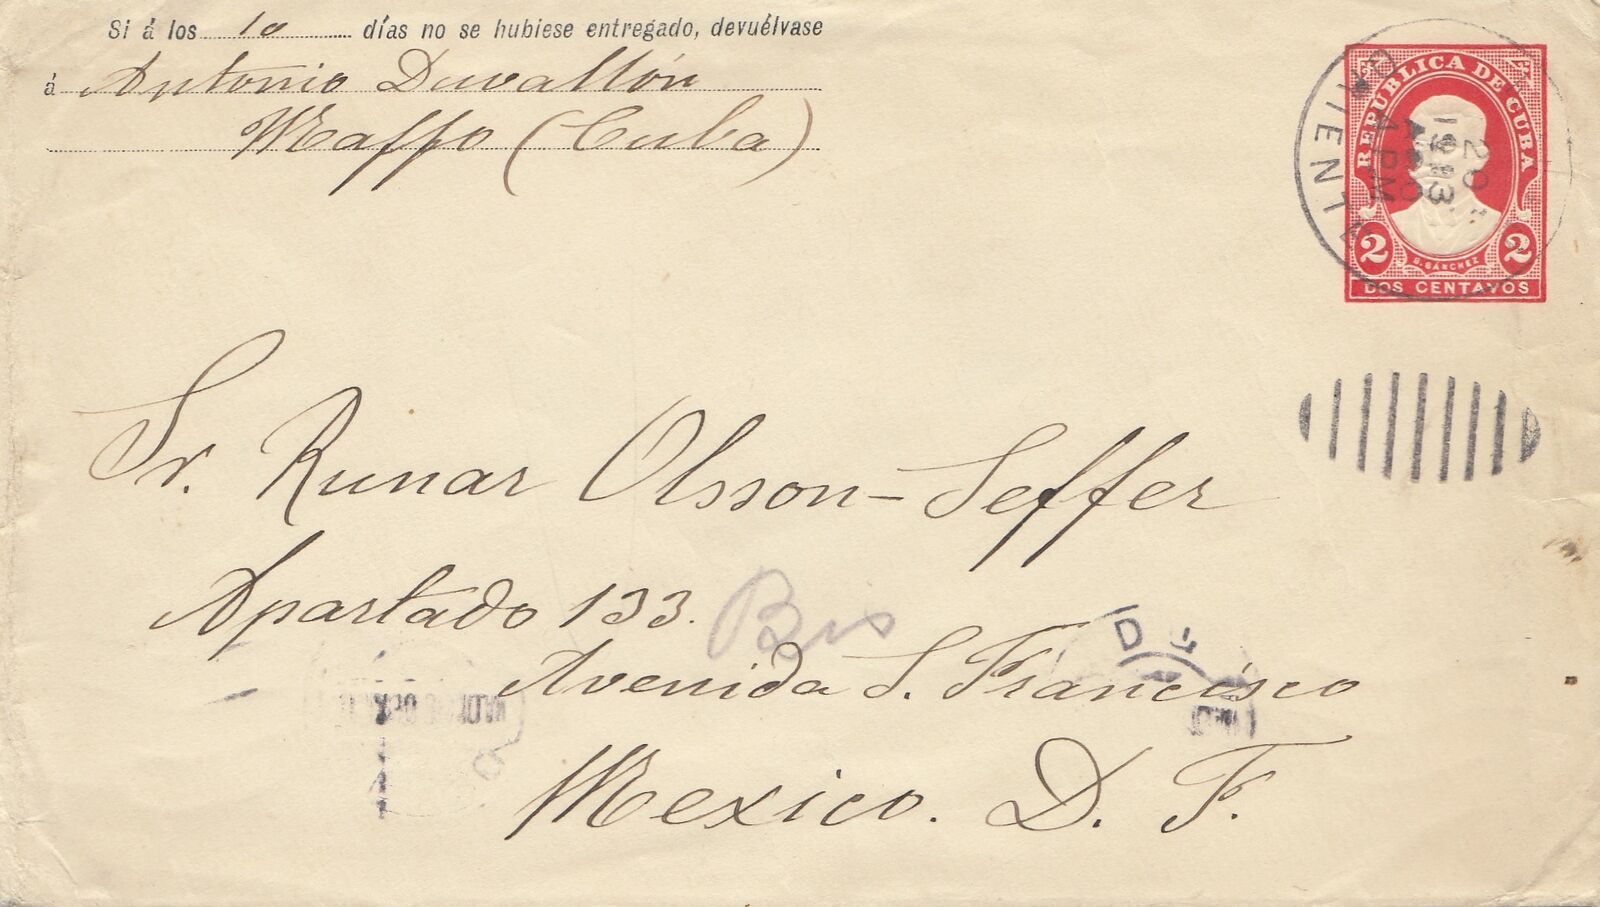 Si á los 10 días no se hubiese entregado, devuélvase
á Antonio Duvallón
Maffo (Cuba)
REPUBLICA DE CUBA
S. SÁNCHEZ
2 2
DOS CENTAVOS
ORIENTE
20
1913
PM
Sr. Runar Olsson-Seffer
Apartado 133. Bis
Avenida S. Francisco
Mexico. D. F.